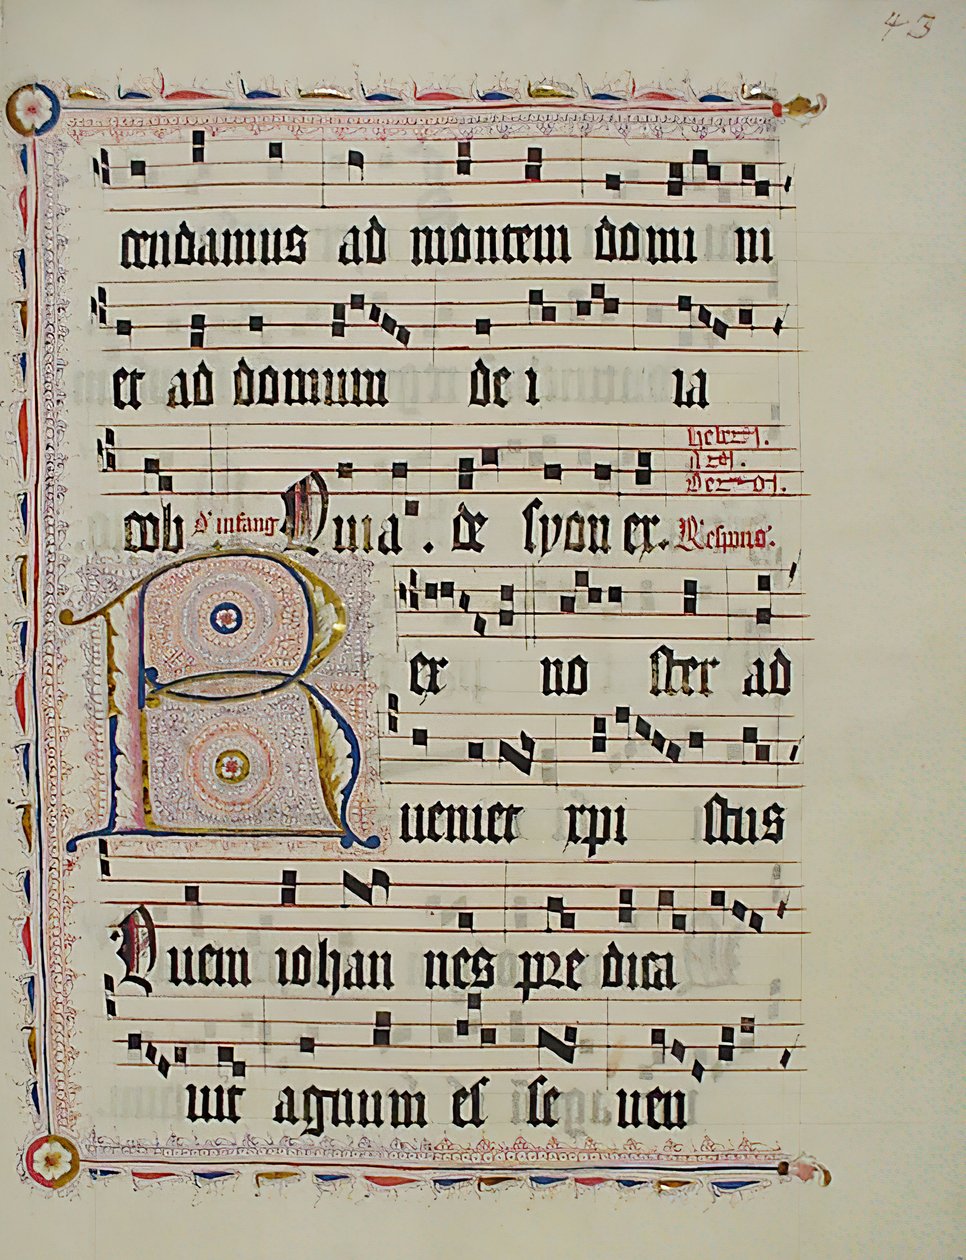 43
cendamus ad montem domi ni
et ad domum de i ia
cob Quia . de syon ex.
ex no ster ad
ueniet xpi stus
Quem iohan nes predica
uit agnum es se uen